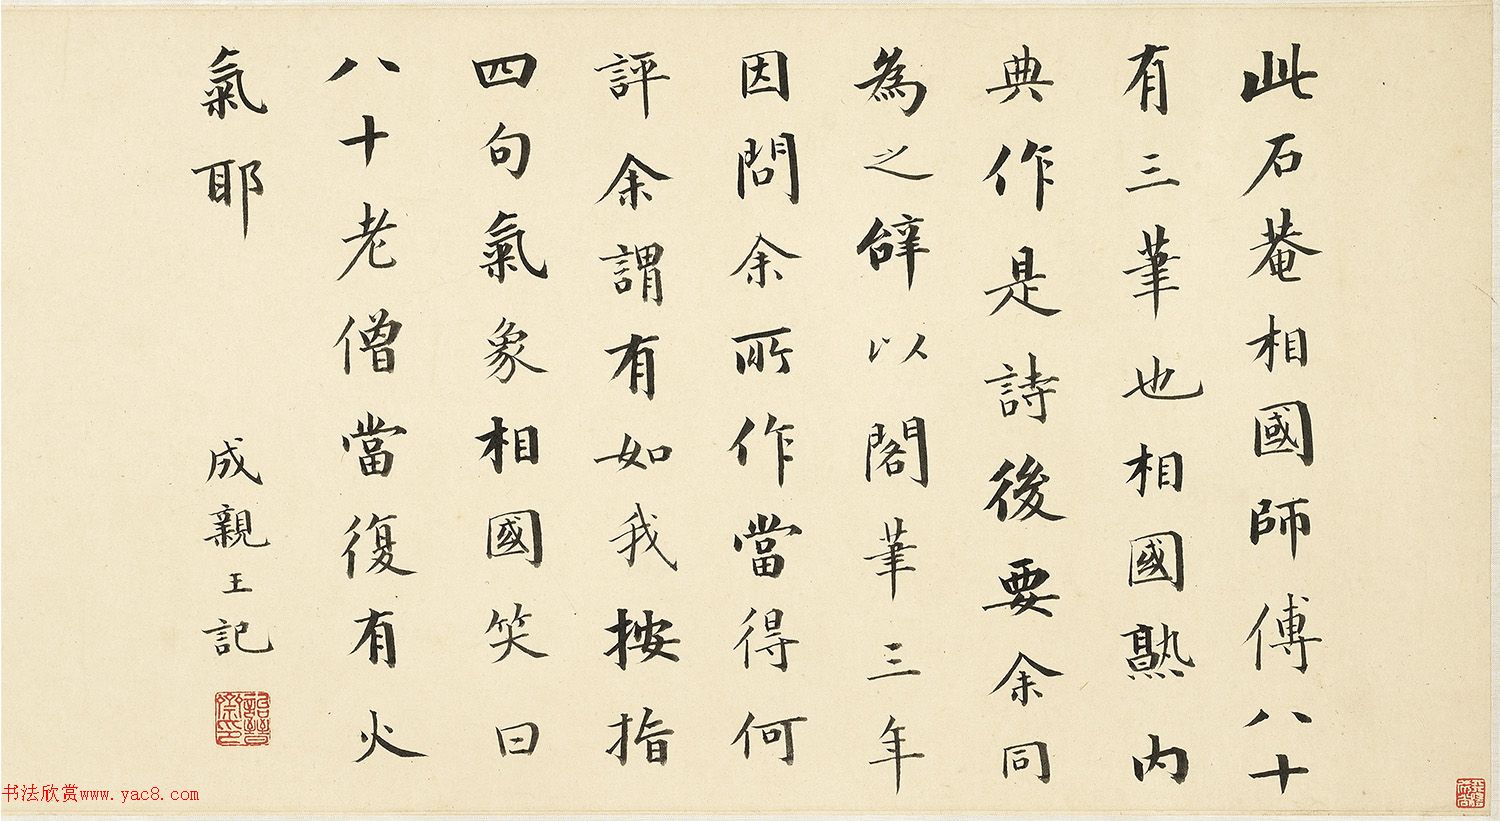 此石菴相國師傅八十
有三筆也相國熟內
典作是詩後要余同
為之辤以閣筆三年
因問余所作當得何
評余謂有如我按指
四句氣象相國笑曰
八十老僧當復有火
氣耶
成親王記
书法欣赏www.yac8.com